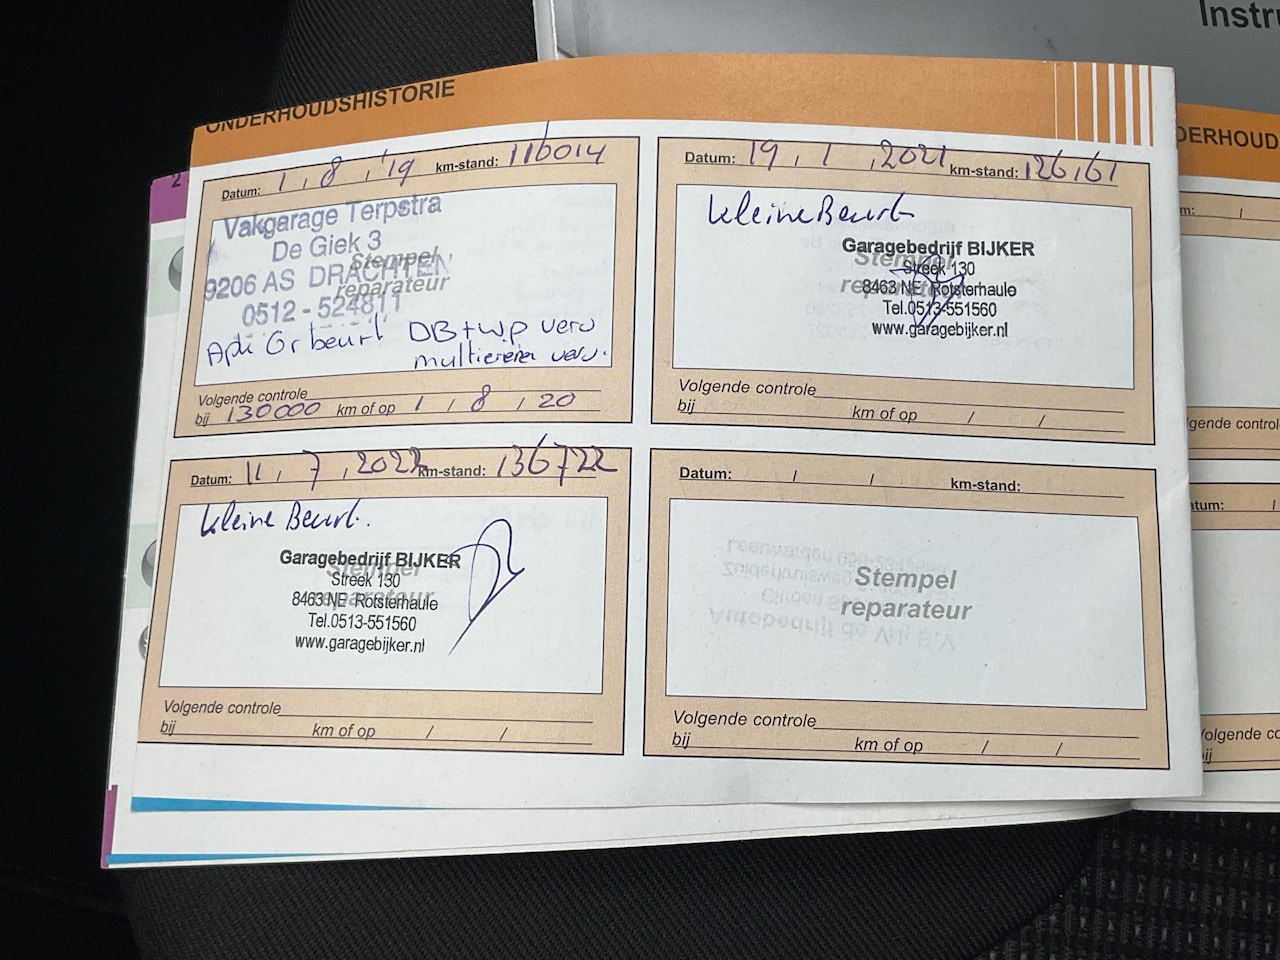 Instru
ONDERHOUDSHISTORIE
DERHOUD
2
Datum: 1 / 8 / '19 km-stand: 116014
Vakgarage Terpstra
De Giek 3
9206 AS DRACHTEN
0512 - 524811
Stempel
reparateur
Apk Gr beurt DB+WP verv
multiriem verv.
Volgende controle
bij 130000 km of op 1 / 8 / 20
Datum: 19 / 1 / 2021 km-stand: 126161
Kleine Beurt
Garagebedrijf BIJKER
Streek 130
8463 NE Rotsterhaule
Tel.0513-551560
www.garagebijker.nl
Stempel
reparateur
Volgende controle
bij km of op / /
Datum: 11 / 7 / 2022 km-stand: 136722
Kleine Beurt.
Garagebedrijf BIJKER
Streek 130
8463 NE Rotsterhaule
Tel.0513-551560
www.garagebijker.nl
Stempel
reparateur
Volgende controle
bij km of op / /
Datum: / / km-stand:
Stempel
reparateur
Volgende controle
bij km of op / /
m: /
gende control
atum: /
olgende co
ij